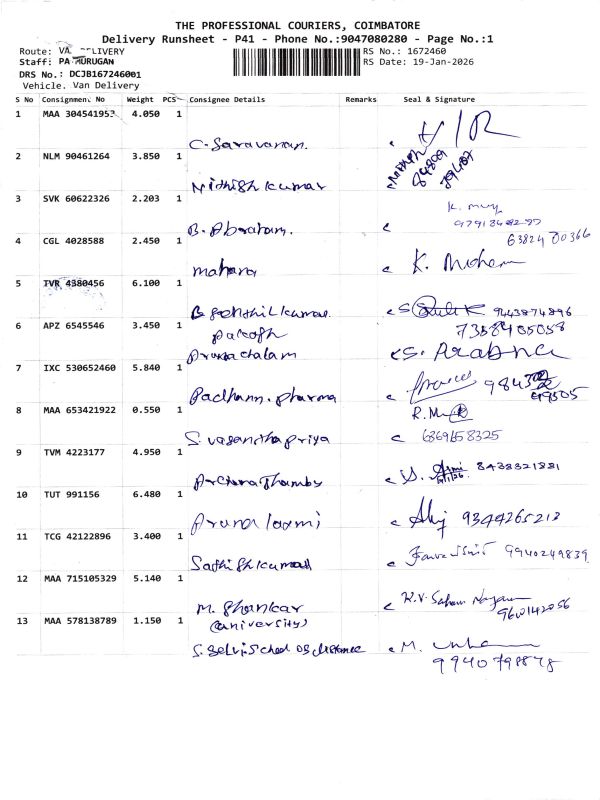 THE PROFESSIONAL COURIERS, COIMBATORE
Delivery Runsheet - P41 - Phone No.:9047080280 - Page No.:1
Route: VA DELIVERY
RS No.: 1672460
Staff: PA MURUGAN
RS Date: 19-Jan-2026
DRS No.: DCJB167246001
Vehicle. Van Delivery
S No Consignment No Weight PCS Consignee Details Remarks Seal & Signature
1 MAA 304541953 4.050 1
C. Saravanan.
2 NLM 90461264 3.850 1
Nithish kumar
3 SVK 60622326 2.203 1
B. Abraham.
4 CGL 4028588 2.450 1
63824 00366
K. Mohan
5 TVR 4380456 6.100 1
B Senthil kumar
9443874896
6 APZ 6545546 3.450 1
7358405058
Prakash
Arunachalam
7 IXC 530652460 5.840 1
Padhma. pharma
8 MAA 653421922 0.550 1
S. vasantha priya
6369658325
9 TVM 4223177 4.950 1
8438321881
10 TUT 991156 6.480 1
Aruna laxmi
9344265213
11 TCG 42122896 3.400 1
9940249839
Sathish kumar
12 MAA 715105329 5.140 1
M. Shankar
9600142056
13 MAA 578138789 1.150 1
(university)
S. Selvi. School of distance
9940798878